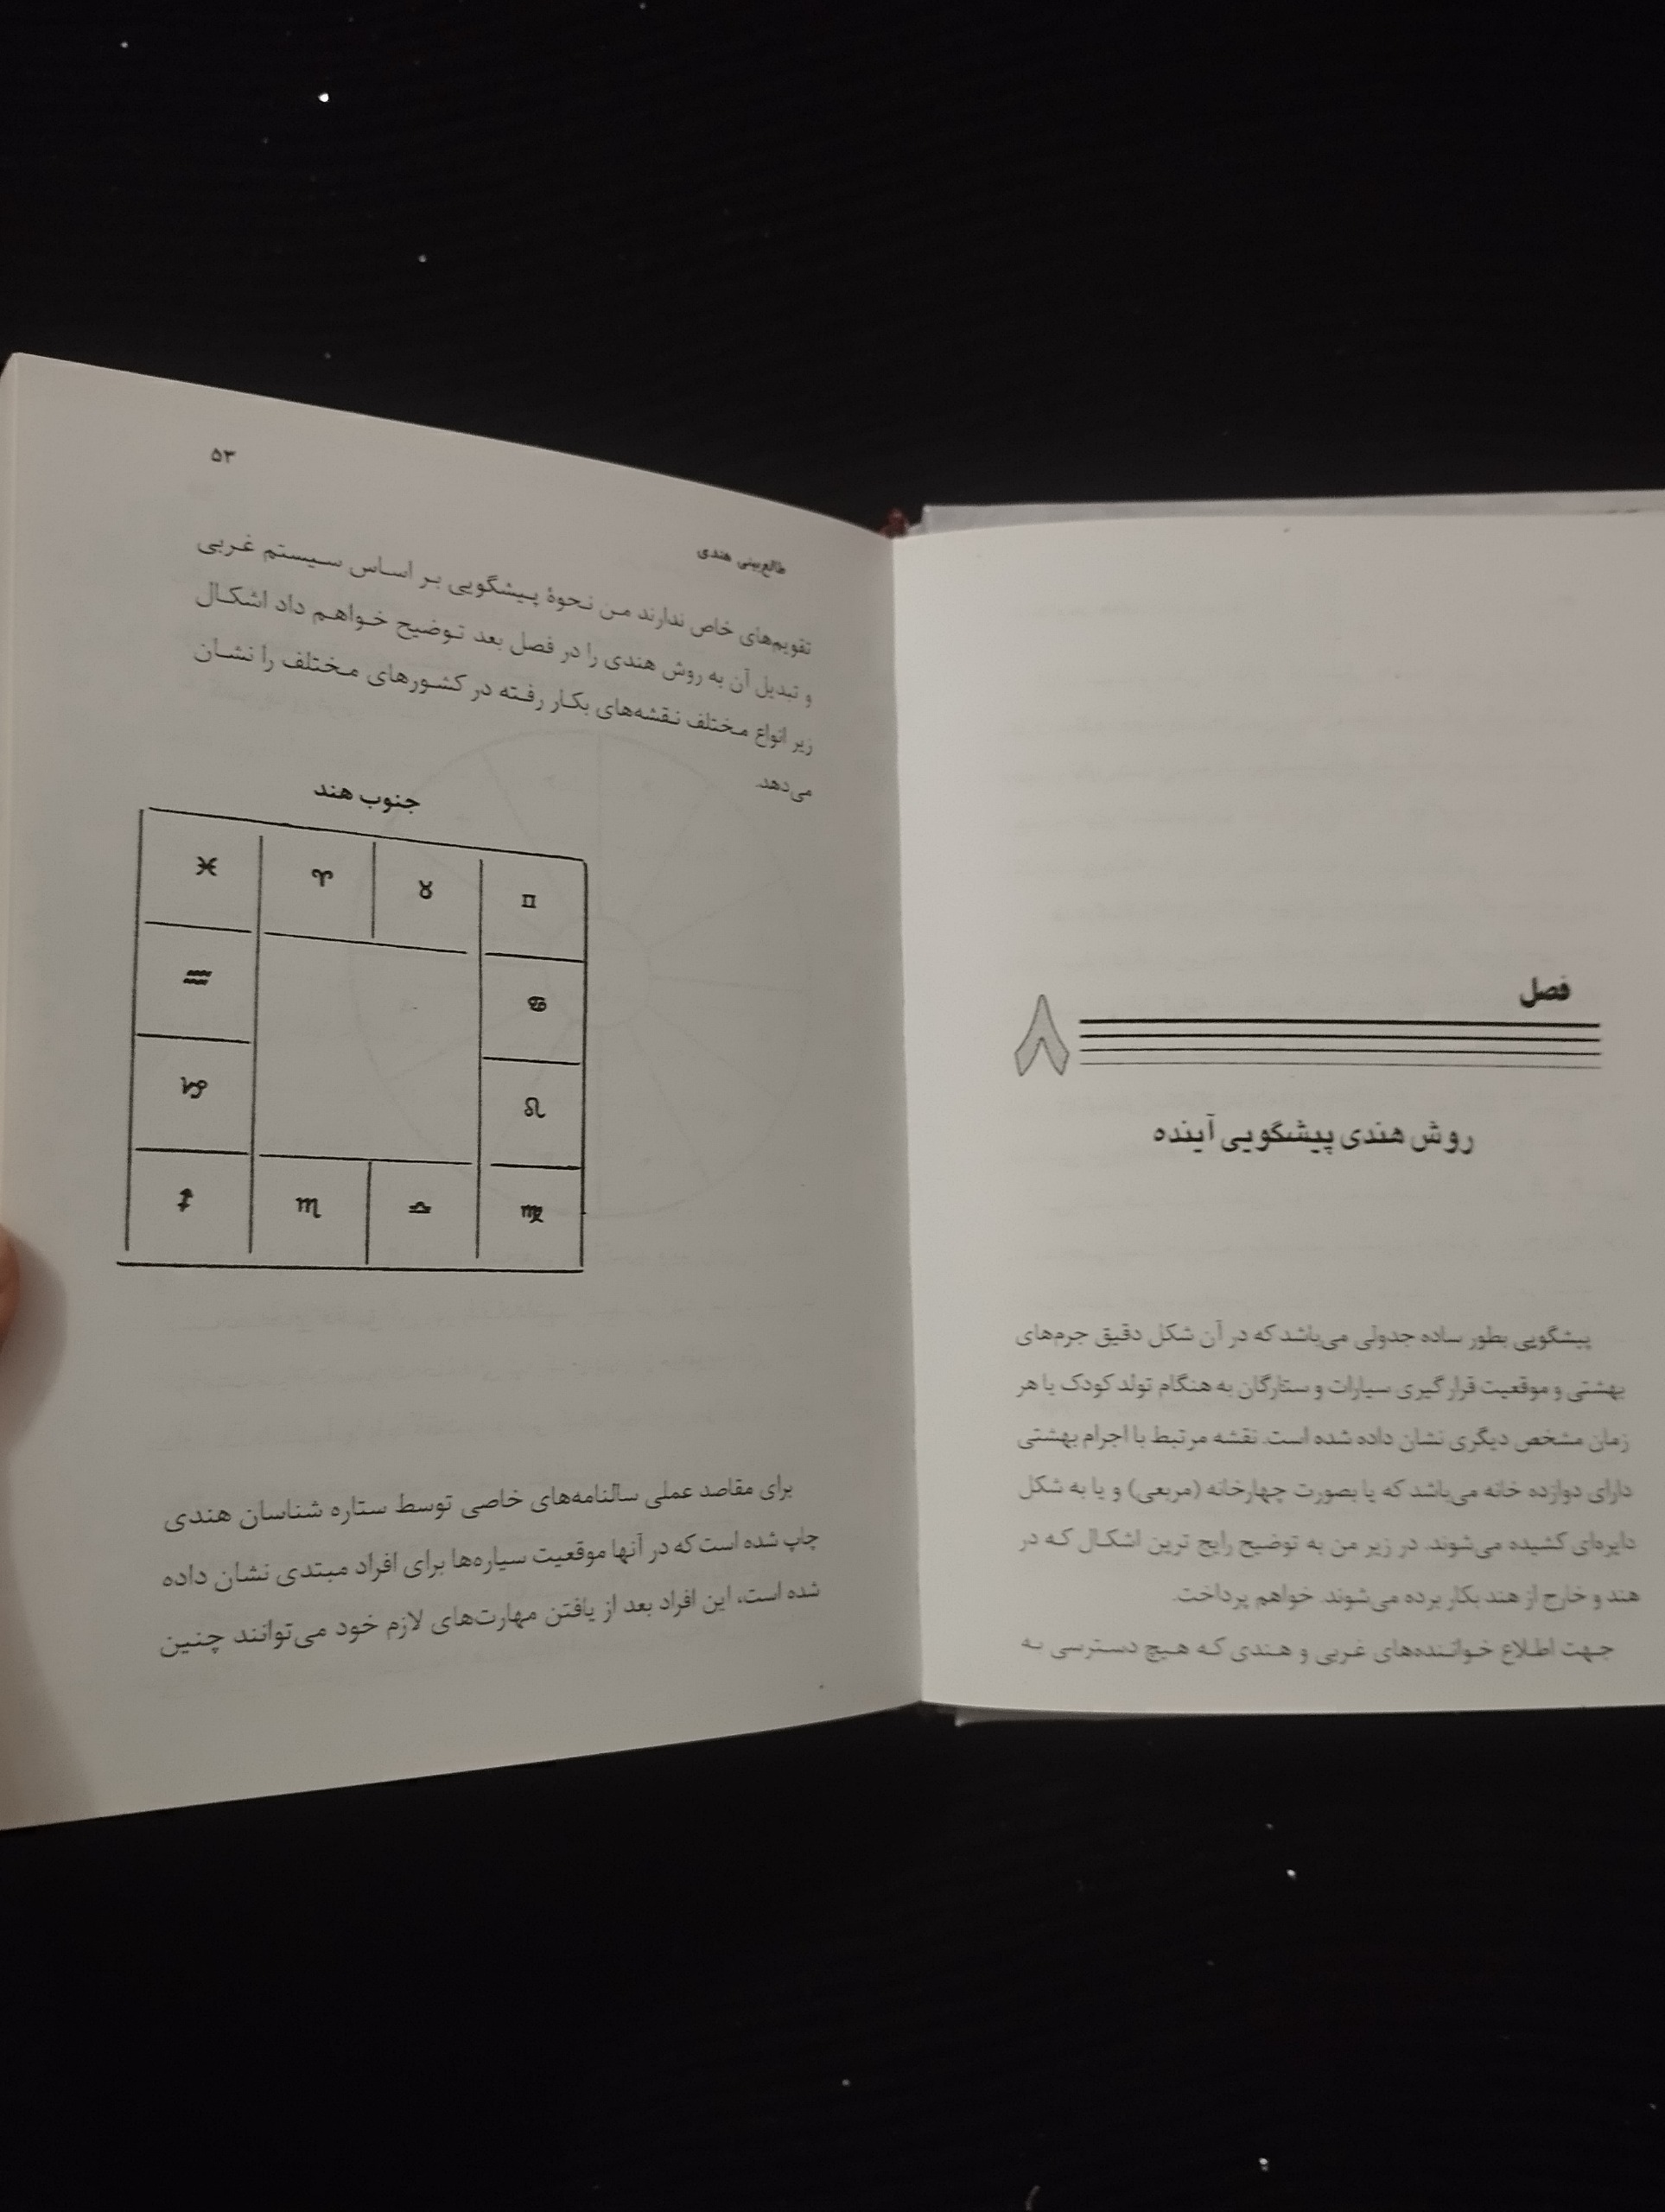 فصل
۸
روش هندی پیشگویی آینده
پیشگویی بطور ساده جدولی می‌باشد که در آن شکل دقیق جرم‌های
بهشتی و موقعیت قرار گیری سیارات و ستارگان به هنگام تولد کودک یا هر
زمان مشخص دیگری نشان داده شده است. نقشه مرتبط با اجرام بهشتی
دارای دوازده خانه می‌باشد که یا بصورت چهارخانه (مربعی) و یا به شکل
دایره‌ای کشیده می‌شوند. در زیر من به توضیح رایج ترین اشکال که در
هند و خارج از هند بکار برده می‌شوند. خواهم پرداخت.
جهت اطلاع خواننده‌های غربی و هندی که هیچ دسترسی به
طالع‌بینی هندی
۵۳
تقویم‌های خاص ندارند من نحوهٔ پیشگویی بر اساس سیستم غربی
و تبدیل آن به روش هندی را در فصل بعد توضیح خواهم داد اشکال
زیر انواع مختلف نقشه‌های بکار رفته در کشورهای مختلف را نشان
می‌دهد.
جنوب هند
♓ ♈ ♉ ♊
♒ ♋
♑ ♌
♐ ♏ ♎ ♍
برای مقاصد عملی سالنامه‌های خاصی توسط ستاره شناسان هندی
چاپ شده است که در آنها موقعیت سیاره‌ها برای افراد مبتدی نشان داده
شده است، این افراد بعد از یافتن مهارت‌های لازم خود می‌توانند چنین